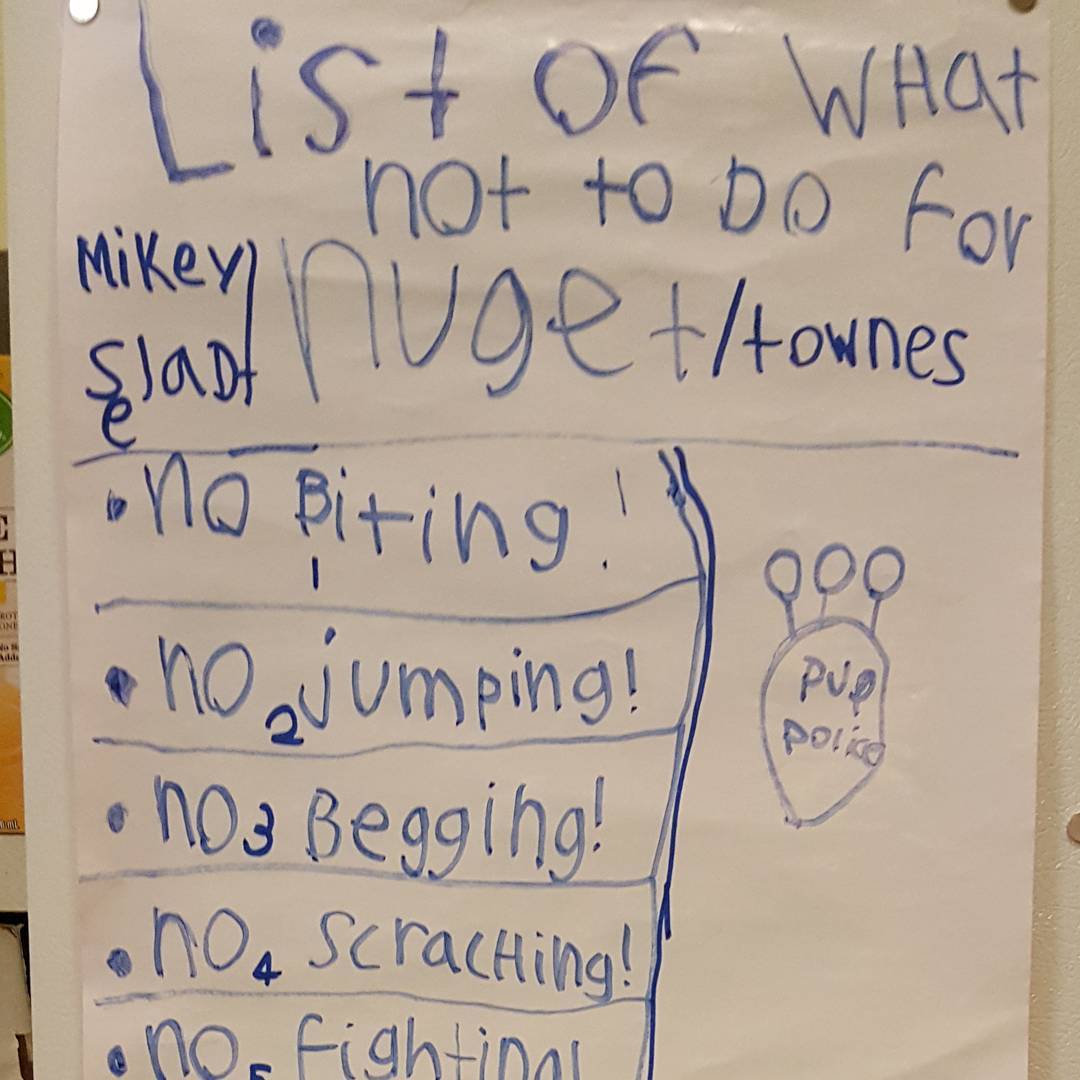 List OF WHat
not to DO For
Mikey/ nuget/townes
SlaDe
• no Biting!
1
• no 2 jumping!
• no 3 Begging!
• no 4 ScracHing!
• no 5 Fighting!
PUP
police